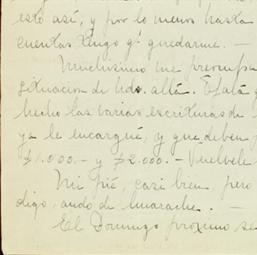 esto así, y por lo menos hasta
cuentas tengo qᵉ quedarme. —
Muchísimo me preocupa
situacion de Uds. allá.
hecho las varias escrituras de
ya le encargué, y que deben
$1.000.- y $2.000.- Vuelvele
Mi pié, casi bien, pero
digo, ando de huarache. —
El Domingo próximo se